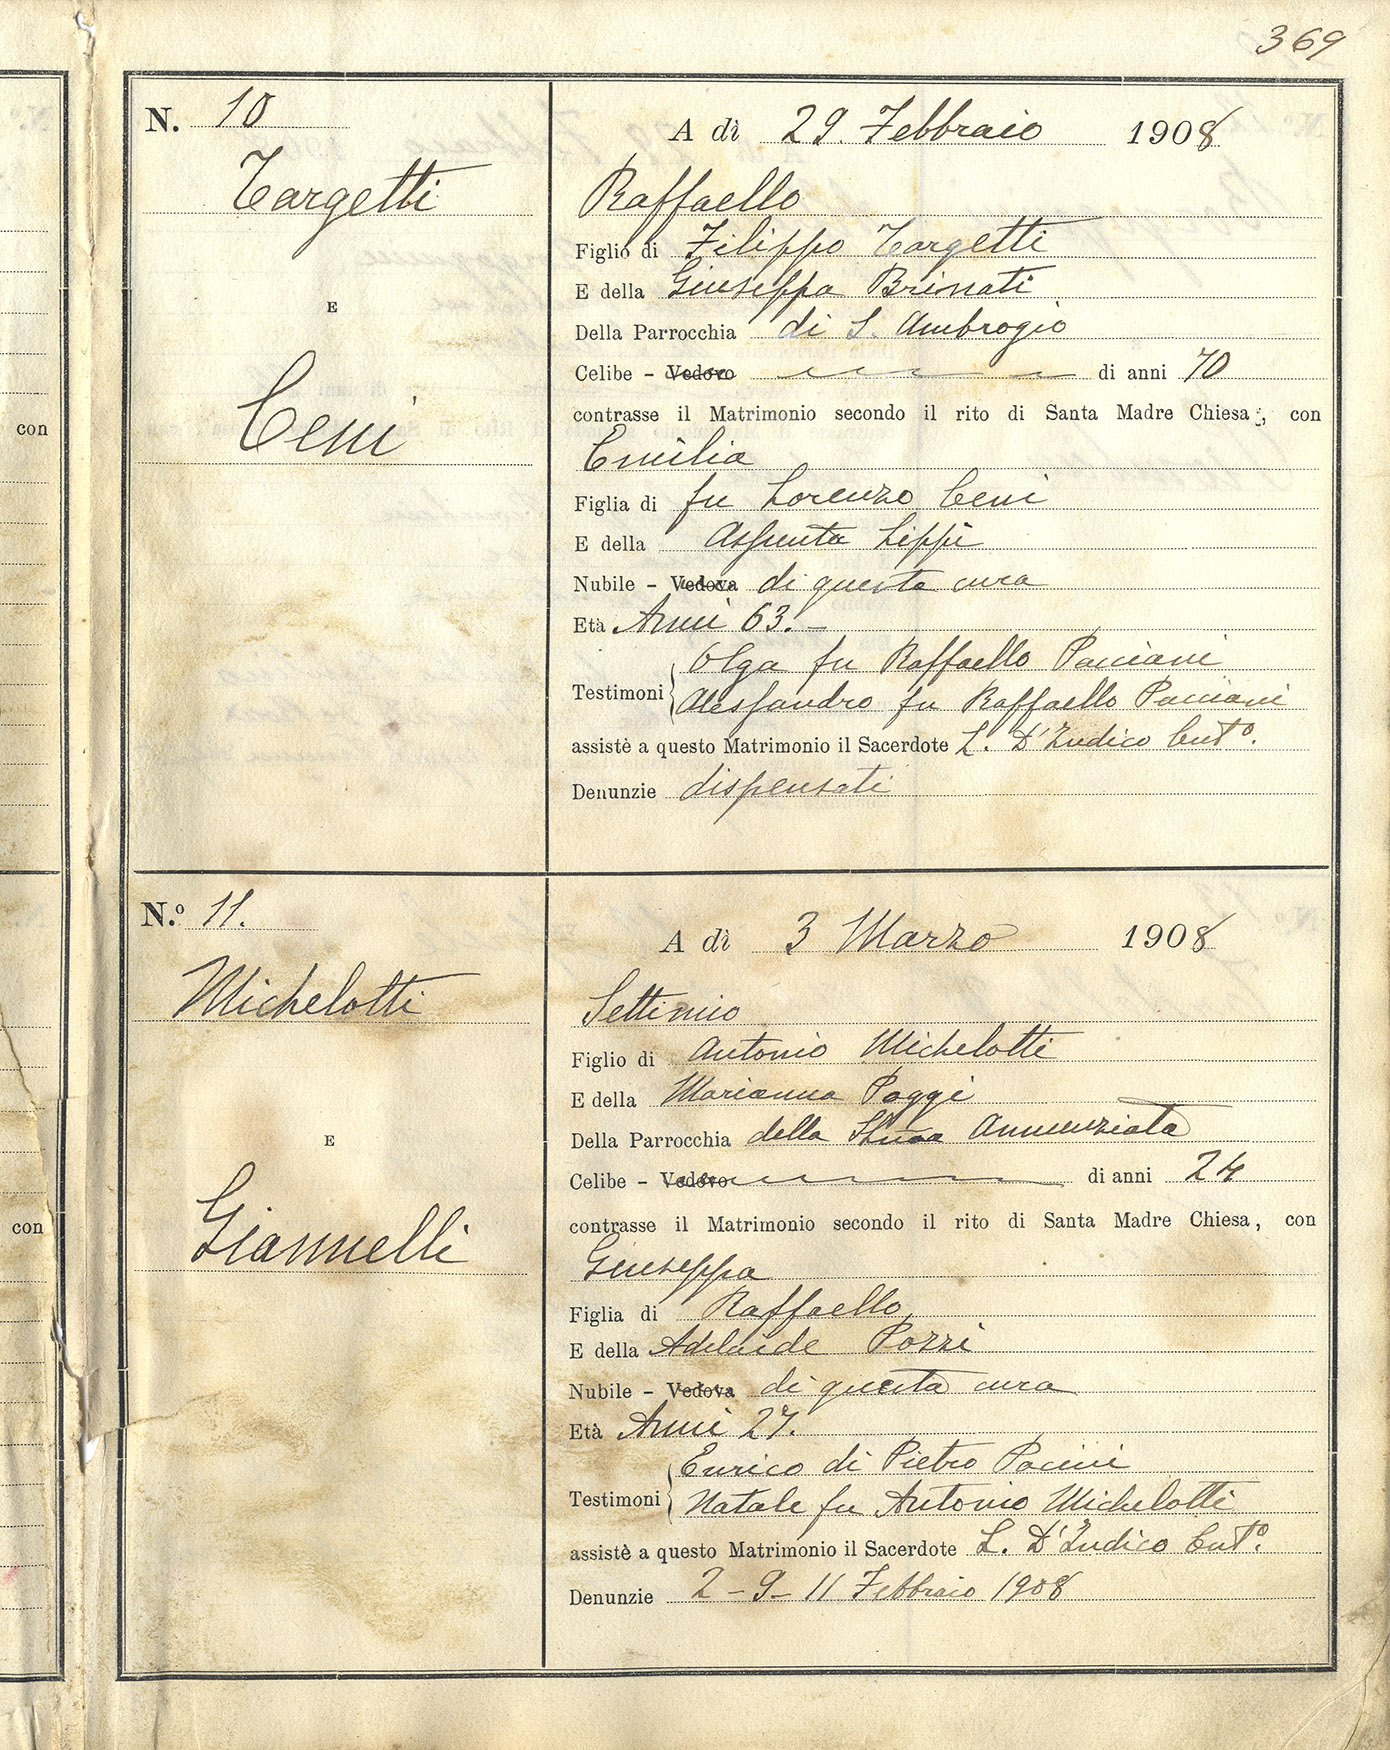 369
con
con
N. 10
Targetti
E
Ceni
A dì 29. Febbraio 1908
Raffaello
Figlio di Filippo Targetti
E della Giuseppa Brinati
Della Parrocchia di S. Ambrogio
Celibe - Vedovo di anni 70
contrasse il Matrimonio secondo il rito di Santa Madre Chiesa, con
Emilia
Figlia di fu Lorenzo Ceni
E della Assunta Lippi
Nubile - Vedova di questa cura
Età Anni 63. -
Olga fu Raffaello Pacciani
Testimoni
Alessandro fu Raffaello Pacciani
assistè a questo Matrimonio il Sacerdote L. D'Indico Cutº.
Denunzie dispensati
N.º 11.
Michelotti
E
Giannelli
A dì 3 Marzo 1908
Settimio
Figlio di Antonio Michelotti
E della Marianna Poggi
Della Parrocchia della Annunziata
Celibe - Vedovo di anni 24
contrasse il Matrimonio secondo il rito di Santa Madre Chiesa, con
Giuseppa
Figlia di Raffaello
E della Adelaide Pozzi
Nubile - Vedova di questa cura
Età Anni 27.
Enrico di Pietro Pacini
Testimoni
Natale fu Antonio Michelotti
assistè a questo Matrimonio il Sacerdote L. D'Indico Cutº.
Denunzie 2 - 9 - 11 Febbraio 1908